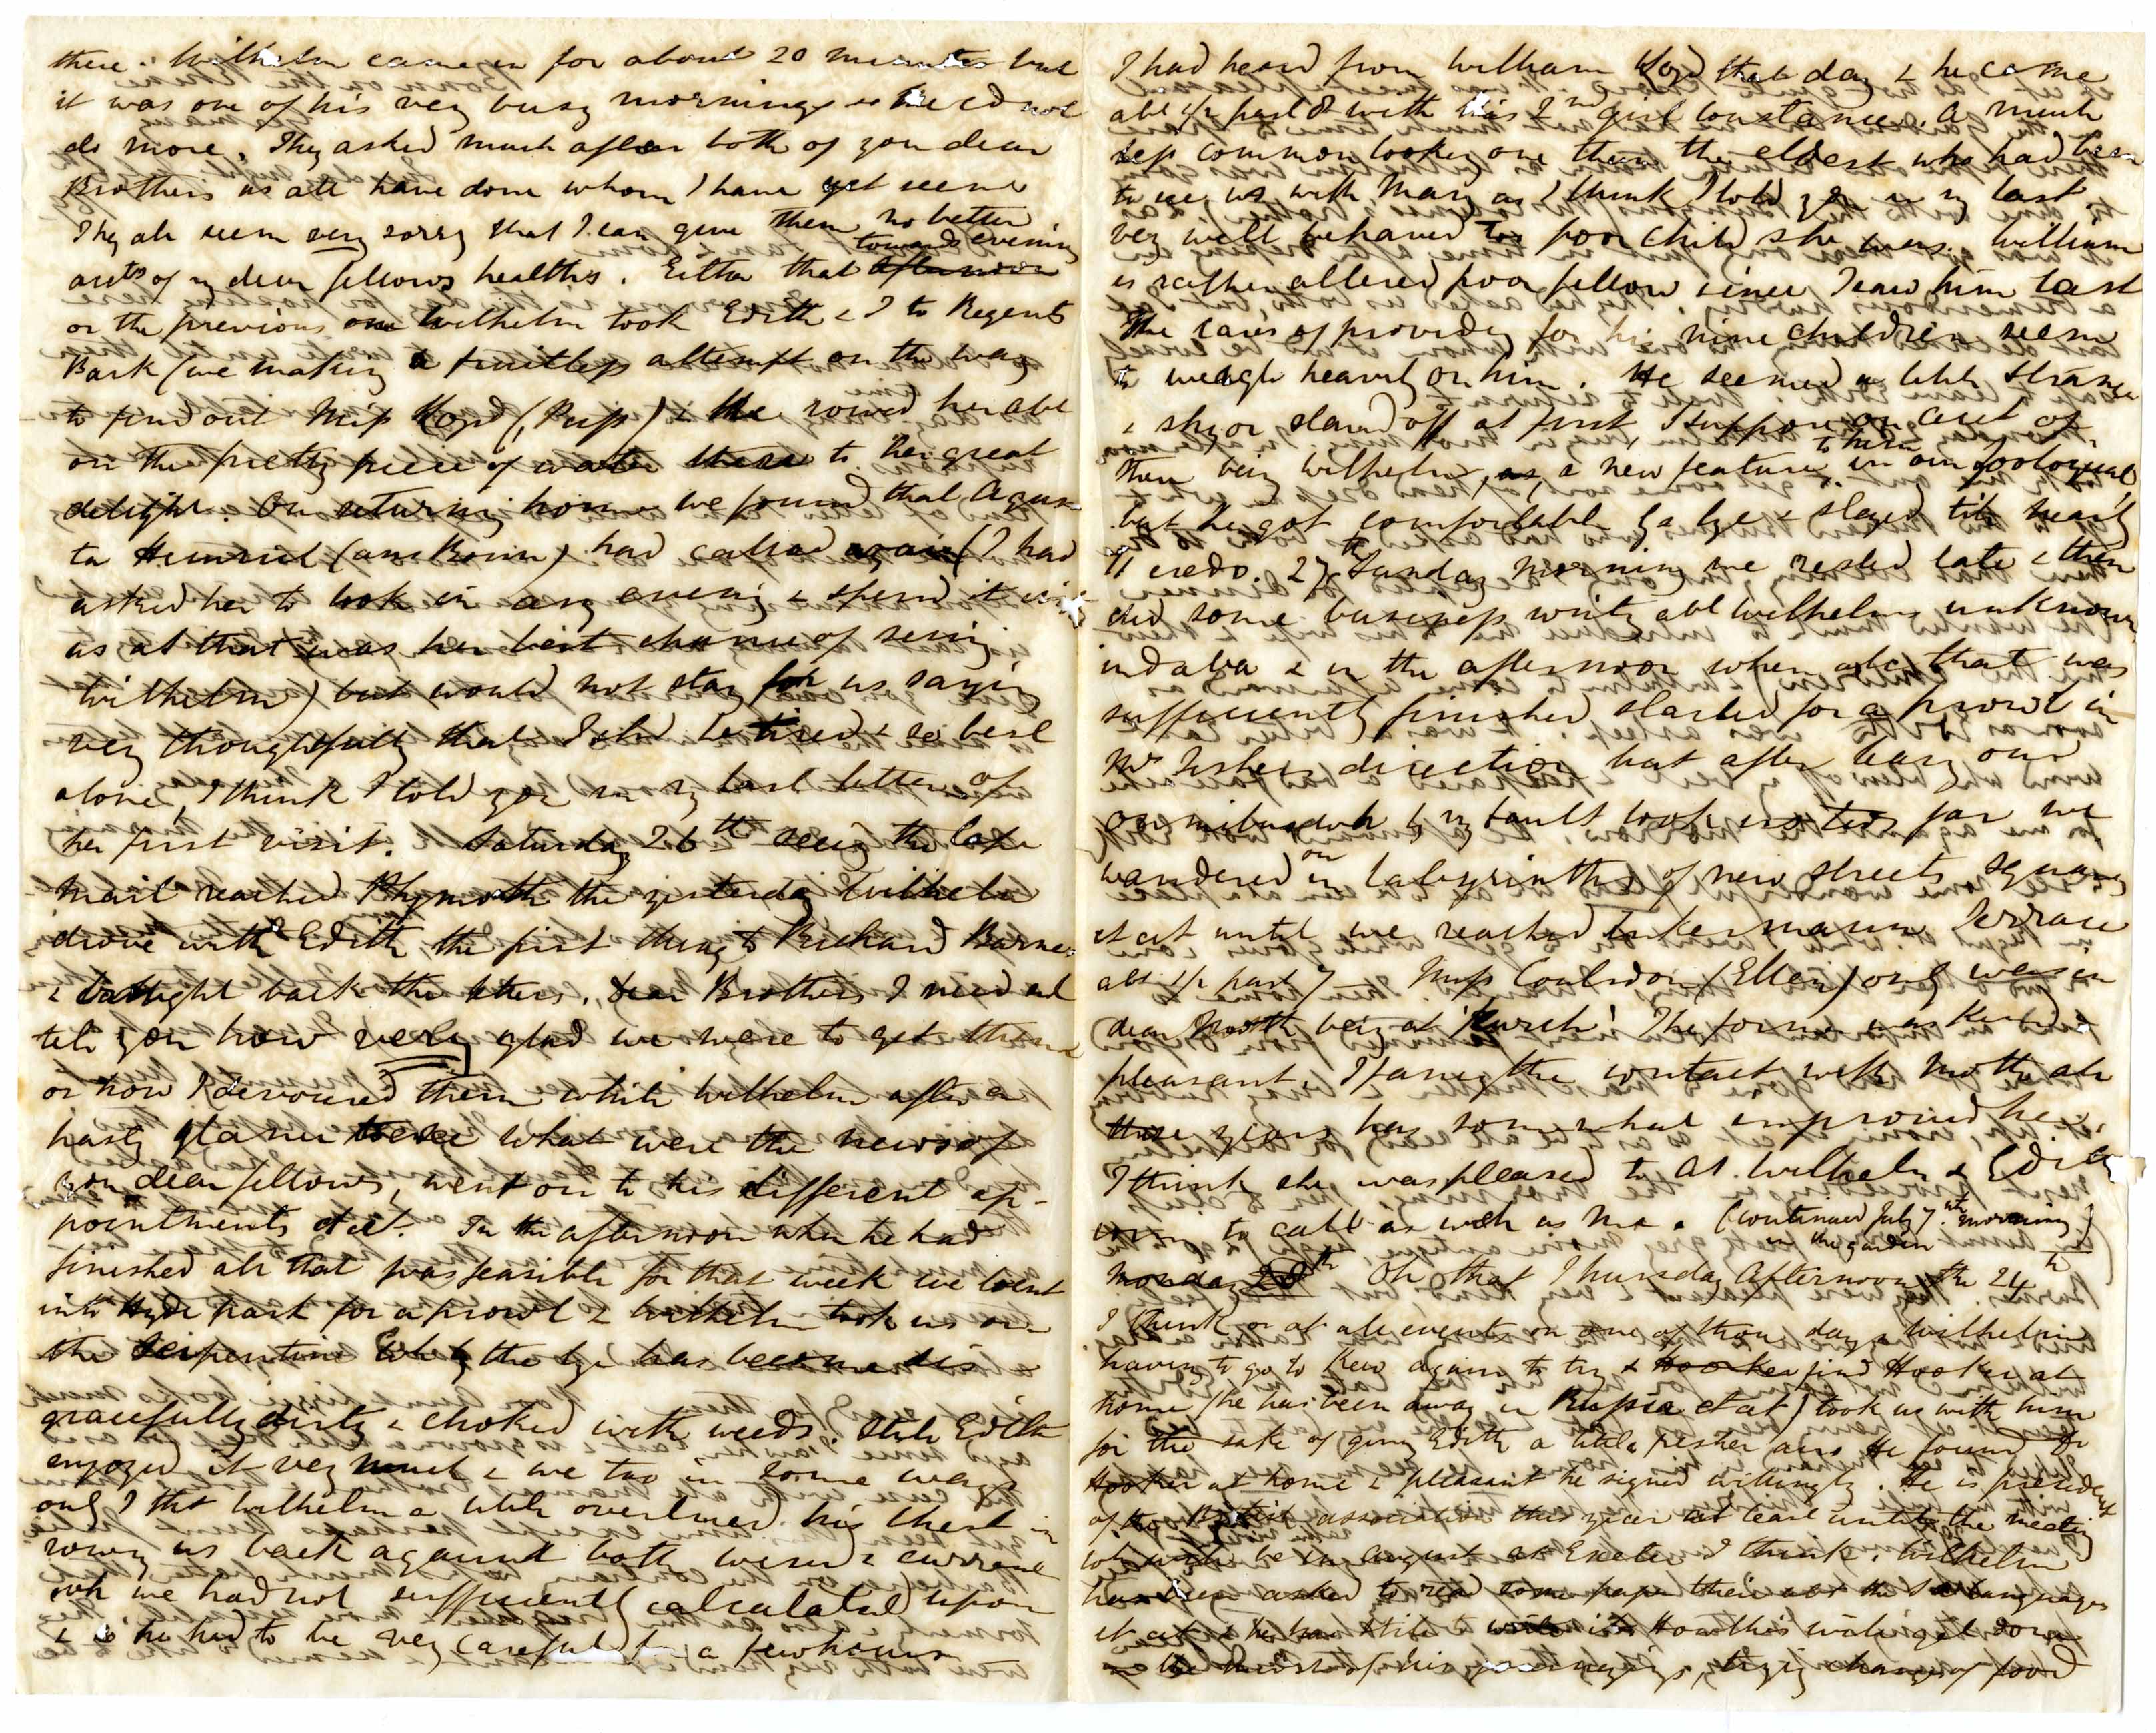 there. Wilhelm came in for about 20 minutes but
it was one of his very busy mornings so he cd not
do more. They asked much after both of you dear
Brothers as all have done whom I have yet seen
They all seem very sorry that I can give them no better
towards evening
accts of my dear fellows healths. Either that afternoon
or the previous one Wilhelm took Edith & I to Regents
Park (we making a fruitless attempt on the way
to find out Miss (Puss) & rowed her abt
on the pretty piece of water there to her great
delight. On returning home we found that Augus
ta Heinrich (am Rhein) had called again (I had
asked her to look in any evening & spend it
as at that was her best chance of seeing
Wilhelm) but would not stay for us saying
very thoughtfully that I shd be tired & so best
alone, I think I told you in my last letter of
her first visit. Saturday 26th seeing the Cape
mail reached Plymouth the yesterday Wilhelm
drove with Edith the first thing to Richard Barnes
& brought back the letters. Dear Brothers I need not
tell you how very glad we were to get them
or how I devoured them while Wilhelm after a
hasty glance to see what were the news of
you dear fellows, went on to his different ap-
pointments etct. In the afternoon when he had
finished all that was feasible for that week we went
into Hyde park for a prowl & Wilhelm took us on
the Serpentine which by the bye has become dis
gracefully dirty & choked with weeds. Still Edith
enjoyed it very much & we too in some ways
only I tht Wilhelm a little overtired his chest in
rowing us back against both wind & current
wh we had not sufficiently calculated upon
& so he had to be very careful for a few hours
I had heard from William that day & he came
abt 1/2 past 8 with his 2nd girl Constance. A much
less common looking one than the eldest who had been
to see us with Mary as I think I told you in my last
very well behaved too poor child she was. William
is rather altered poor fellow since I saw him last
The cares of providing for his nine children seem
to weigh heavily on him. He seemed a little strange
& shy or stand off at first I suppose on acct of
to him
there being Wilhelm, as a new feature in our
but he got comfortable by the bye & stayed till nearly
11 credo. 27th Sunday morning we rested late & then
did some business writing abt Wilhelm's unknown
indaba & in the afternoon when abt that was
sufficiently finished started for a prowl in
Mrs direction but after leaving our
omnibus wh by my fault took us too far we
on
wandered in labyrinths of new streets squares
et cet until we reached Inkermann Terrace
abt 1/2 past 7. Miss Coulsdon (Ellen) only was in
dear being at 'Kurch'. The former was kind &
pleasant. I fancy the contact with all
these years has somewhat improved her.
I think she was pleased to at. Wilhelm & Edith
to call as well as me. (continued July 7th morning
in the garden)
Monday 28th Oh that Thursday afternoon the 24th
I think or at all events on one of those days Wilhelm
having to go to Kew again to try & Hooker find Hooker at
home (he has been away in Russia et cet) took us with him
for the sake of giving Edith a little fresher air. He found Dr
Hooker at home & pleasant he signed willingly. He is president
of the British association this year at least until the meeting
wh will be in August at Exeter I think. Wilhelm
has been asked to read some paper there abt the S A languages
et cet & he has still to write it. How this will get done
in the midst of his journeyings, trying change of food